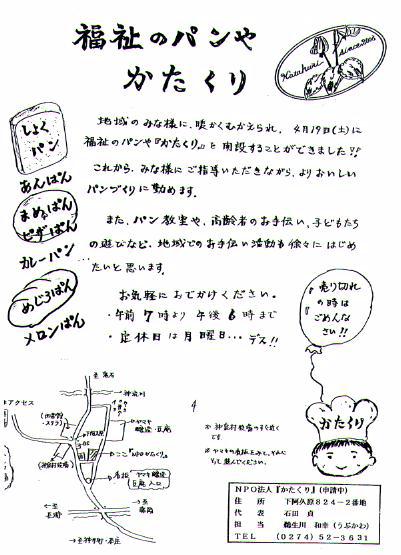 福祉のパンや
かたくり
Katakuri since2003
地域のみな様に、暖かくむかえられ、4月19日(土)に
福祉のパンや『かたくり』を開設することができました!!
これから、みな様にご指導いただきながら、よりおいしい
パンづくりに勤めます。
また、パン教室や、高齢者のお手伝い、子どもたち
の遊びなど、地域でのお手伝い活動も徐々にはじめ
たいと思います。
お気軽におでかけください。
・午前7時より午後6時まで
・定休日は月曜日…デス!!
しょくパン
あんぱん
まめぱん
ピザぱん
カレーパン
めじろぱん
メロンぱん
売り切れ
の時は
ごめんな
さい!!
かたくり
アクセス
神流川
ヤマキ
醸造・豆庵
看板
ヤマキ醸造
豆庵入口
NPO法人『かたくり』(申請中)
住所 下阿久原824-2番地
代表 石田 貞
担当 鶴生川 和幸(うぶかわ)
TEL (0274)52-3631